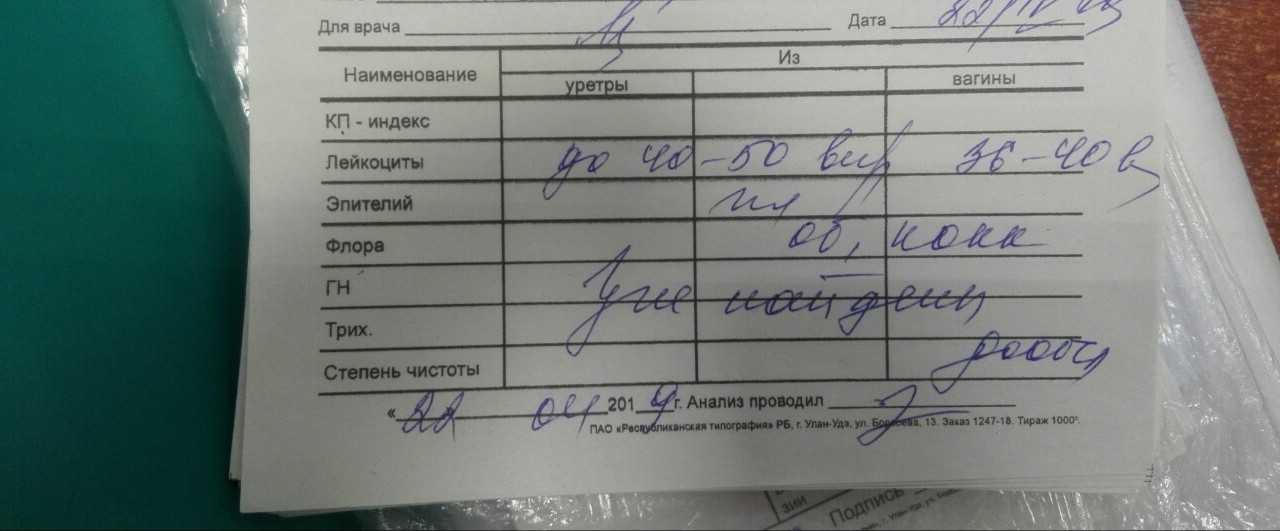 Для врача Дата 22/IV
Из
Наименование уретры вагины
КП - индекс
Лейкоциты до 40-50 в п/з 36-40 в
Эпителий пл
Флора об, кокк
ГН не найдены
Трих.
Степень чистоты
« 22 04 2019 г. Анализ проводил
ПАО «Республиканская типография» РБ, г. Улан-Удэ, ул. Борсоева, 13. Заказ 1247-18. Тираж 1000
зии Подпись